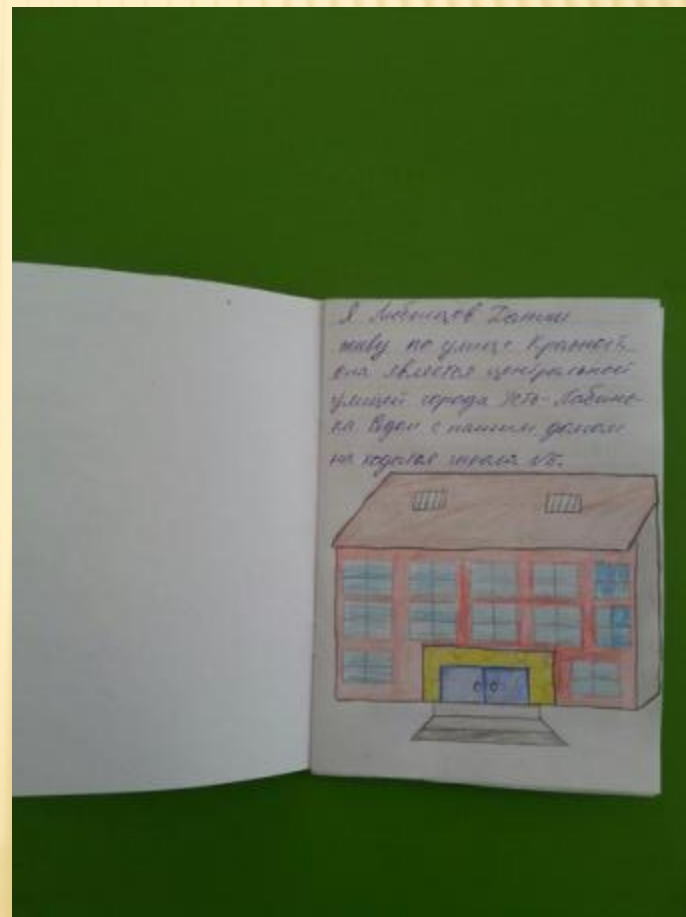 Я Любенцов Данил
живу по улице Красной
она является центральной
улицей города Усть-Лабинс-
ка Рядом с нашим домом
на ходится школа №6.